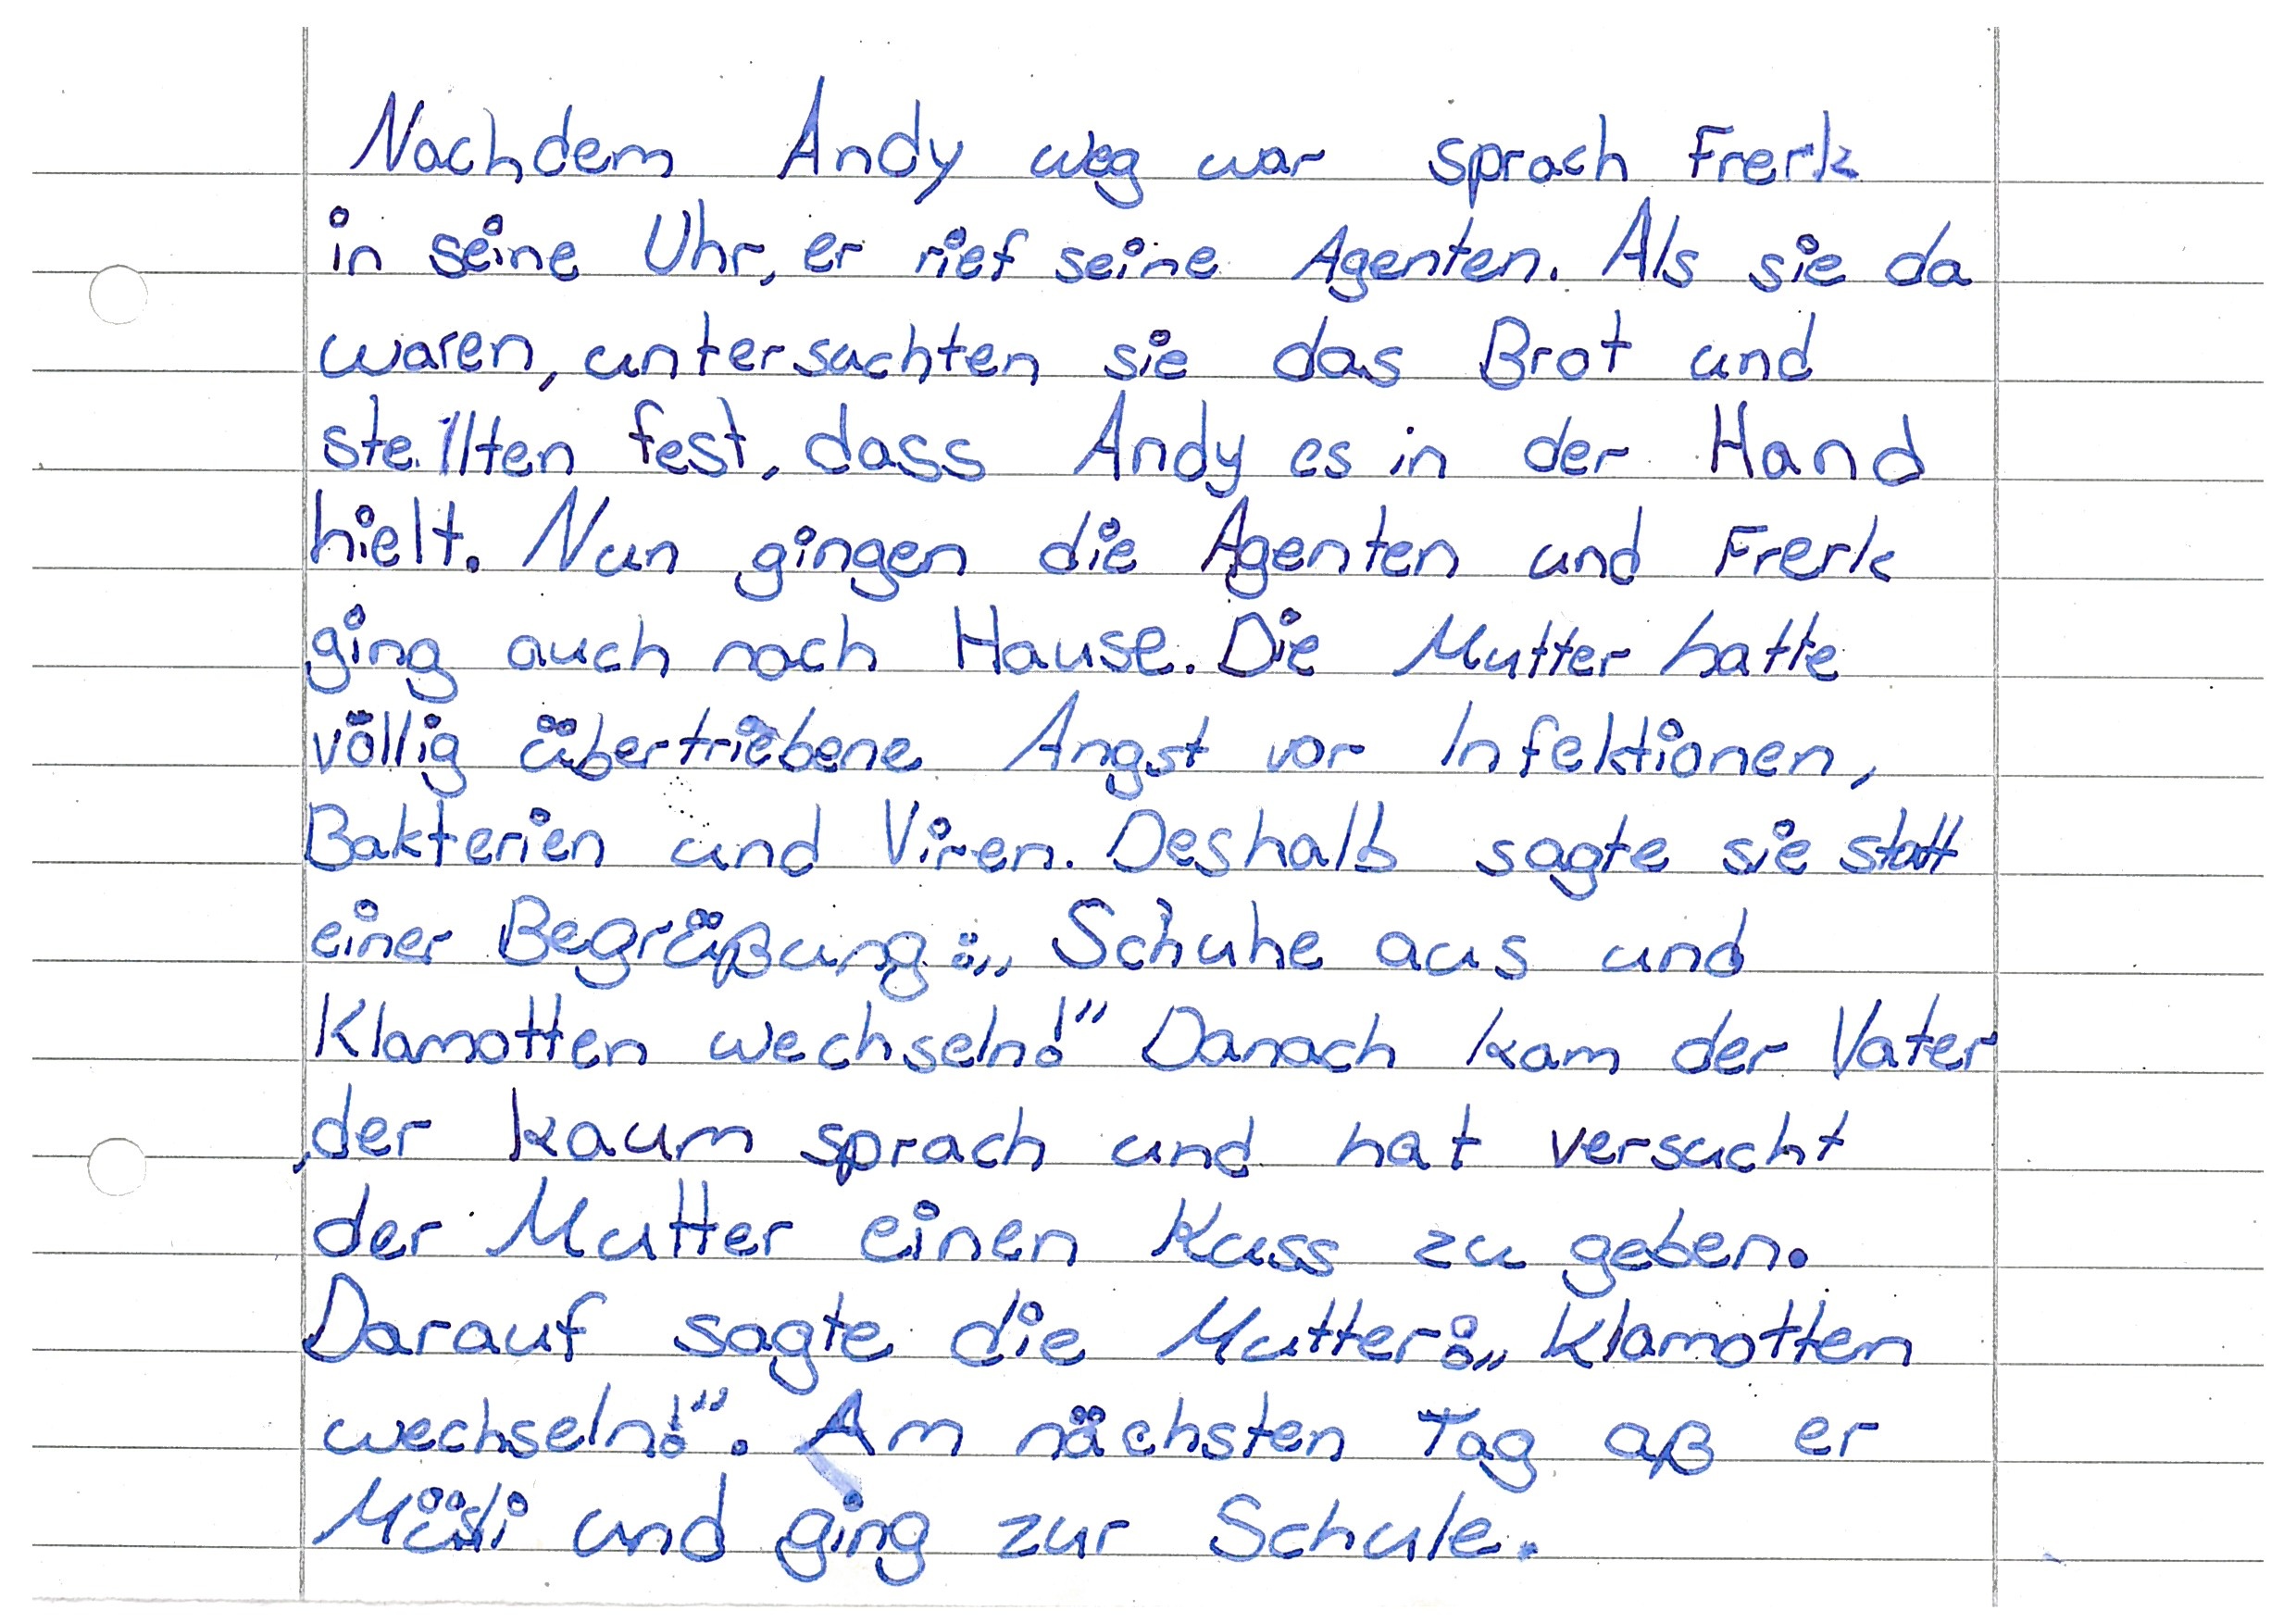 Nachdem Andy weg war sprach Frerk
in seine Uhr, er rief seine Agenten. Als sie da
waren, untersuchten sie das Brot und
stellten fest, dass Andy es in der Hand
hielt. Nun gingen die Agenten und Frerk
ging auch nach Hause. Die Mutter hatte
völlig übertriebene Angst vor Infektionen,
Bakterien und Viren. Deshalb sagte sie statt
einer Begrüßung: „Schuhe aus und
Klamotten wechseln!" Danach kam der Vater
,der kaum sprach und hat versucht
der Mutter einen Kuss zu geben.
Darauf sagte die Mutter: „Klamotten
wechseln!". Am nächsten Tag aß er
Müsli und ging zur Schule.